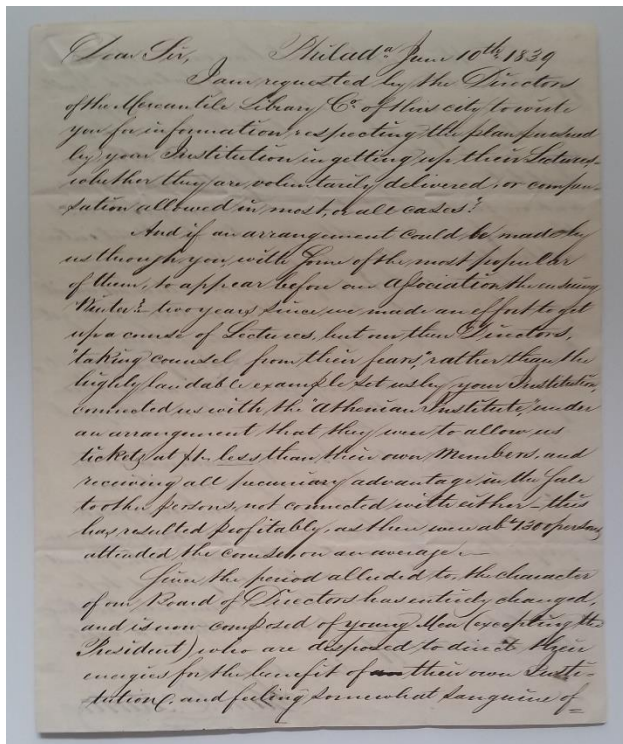 Dear Sir, Philad.a June 10th 1839
I am requested by the Directors
of the Mercantile Library Co. of this city to write
you for information respecting the plan pursued
by your Institution in getting up their Lectures–
whether they are voluntarily delivered, or compen-
sation allowed in most, or all cases?
And if an arrangement could be made by
us through you, with some of the most popular
of them, to appear before our Association the ensuing
Winter? two years since we made an effort to get
up a course of Lectures, but our then Directors,
"taking counsel from their fears," rather than the
highly laudable example set us by your Institution,
connected us with the "Athenian Institute" under
an arrangement that they were to allow us
tickets at less than their own Members, and
receiving all pecuniary advantage in the sale
to other persons, not connected with either – this
has resulted profitably, as there were abt. 1300 persons
attended the course, on an average. –
Since the period alluded to, the character
of our Board of Directors has entirely changed,
and is now composed of young Men (excepting the
President) who are disposed to direct their
energies for the benefit of their own Insti-
tution, and feeling somewhat sanguine of